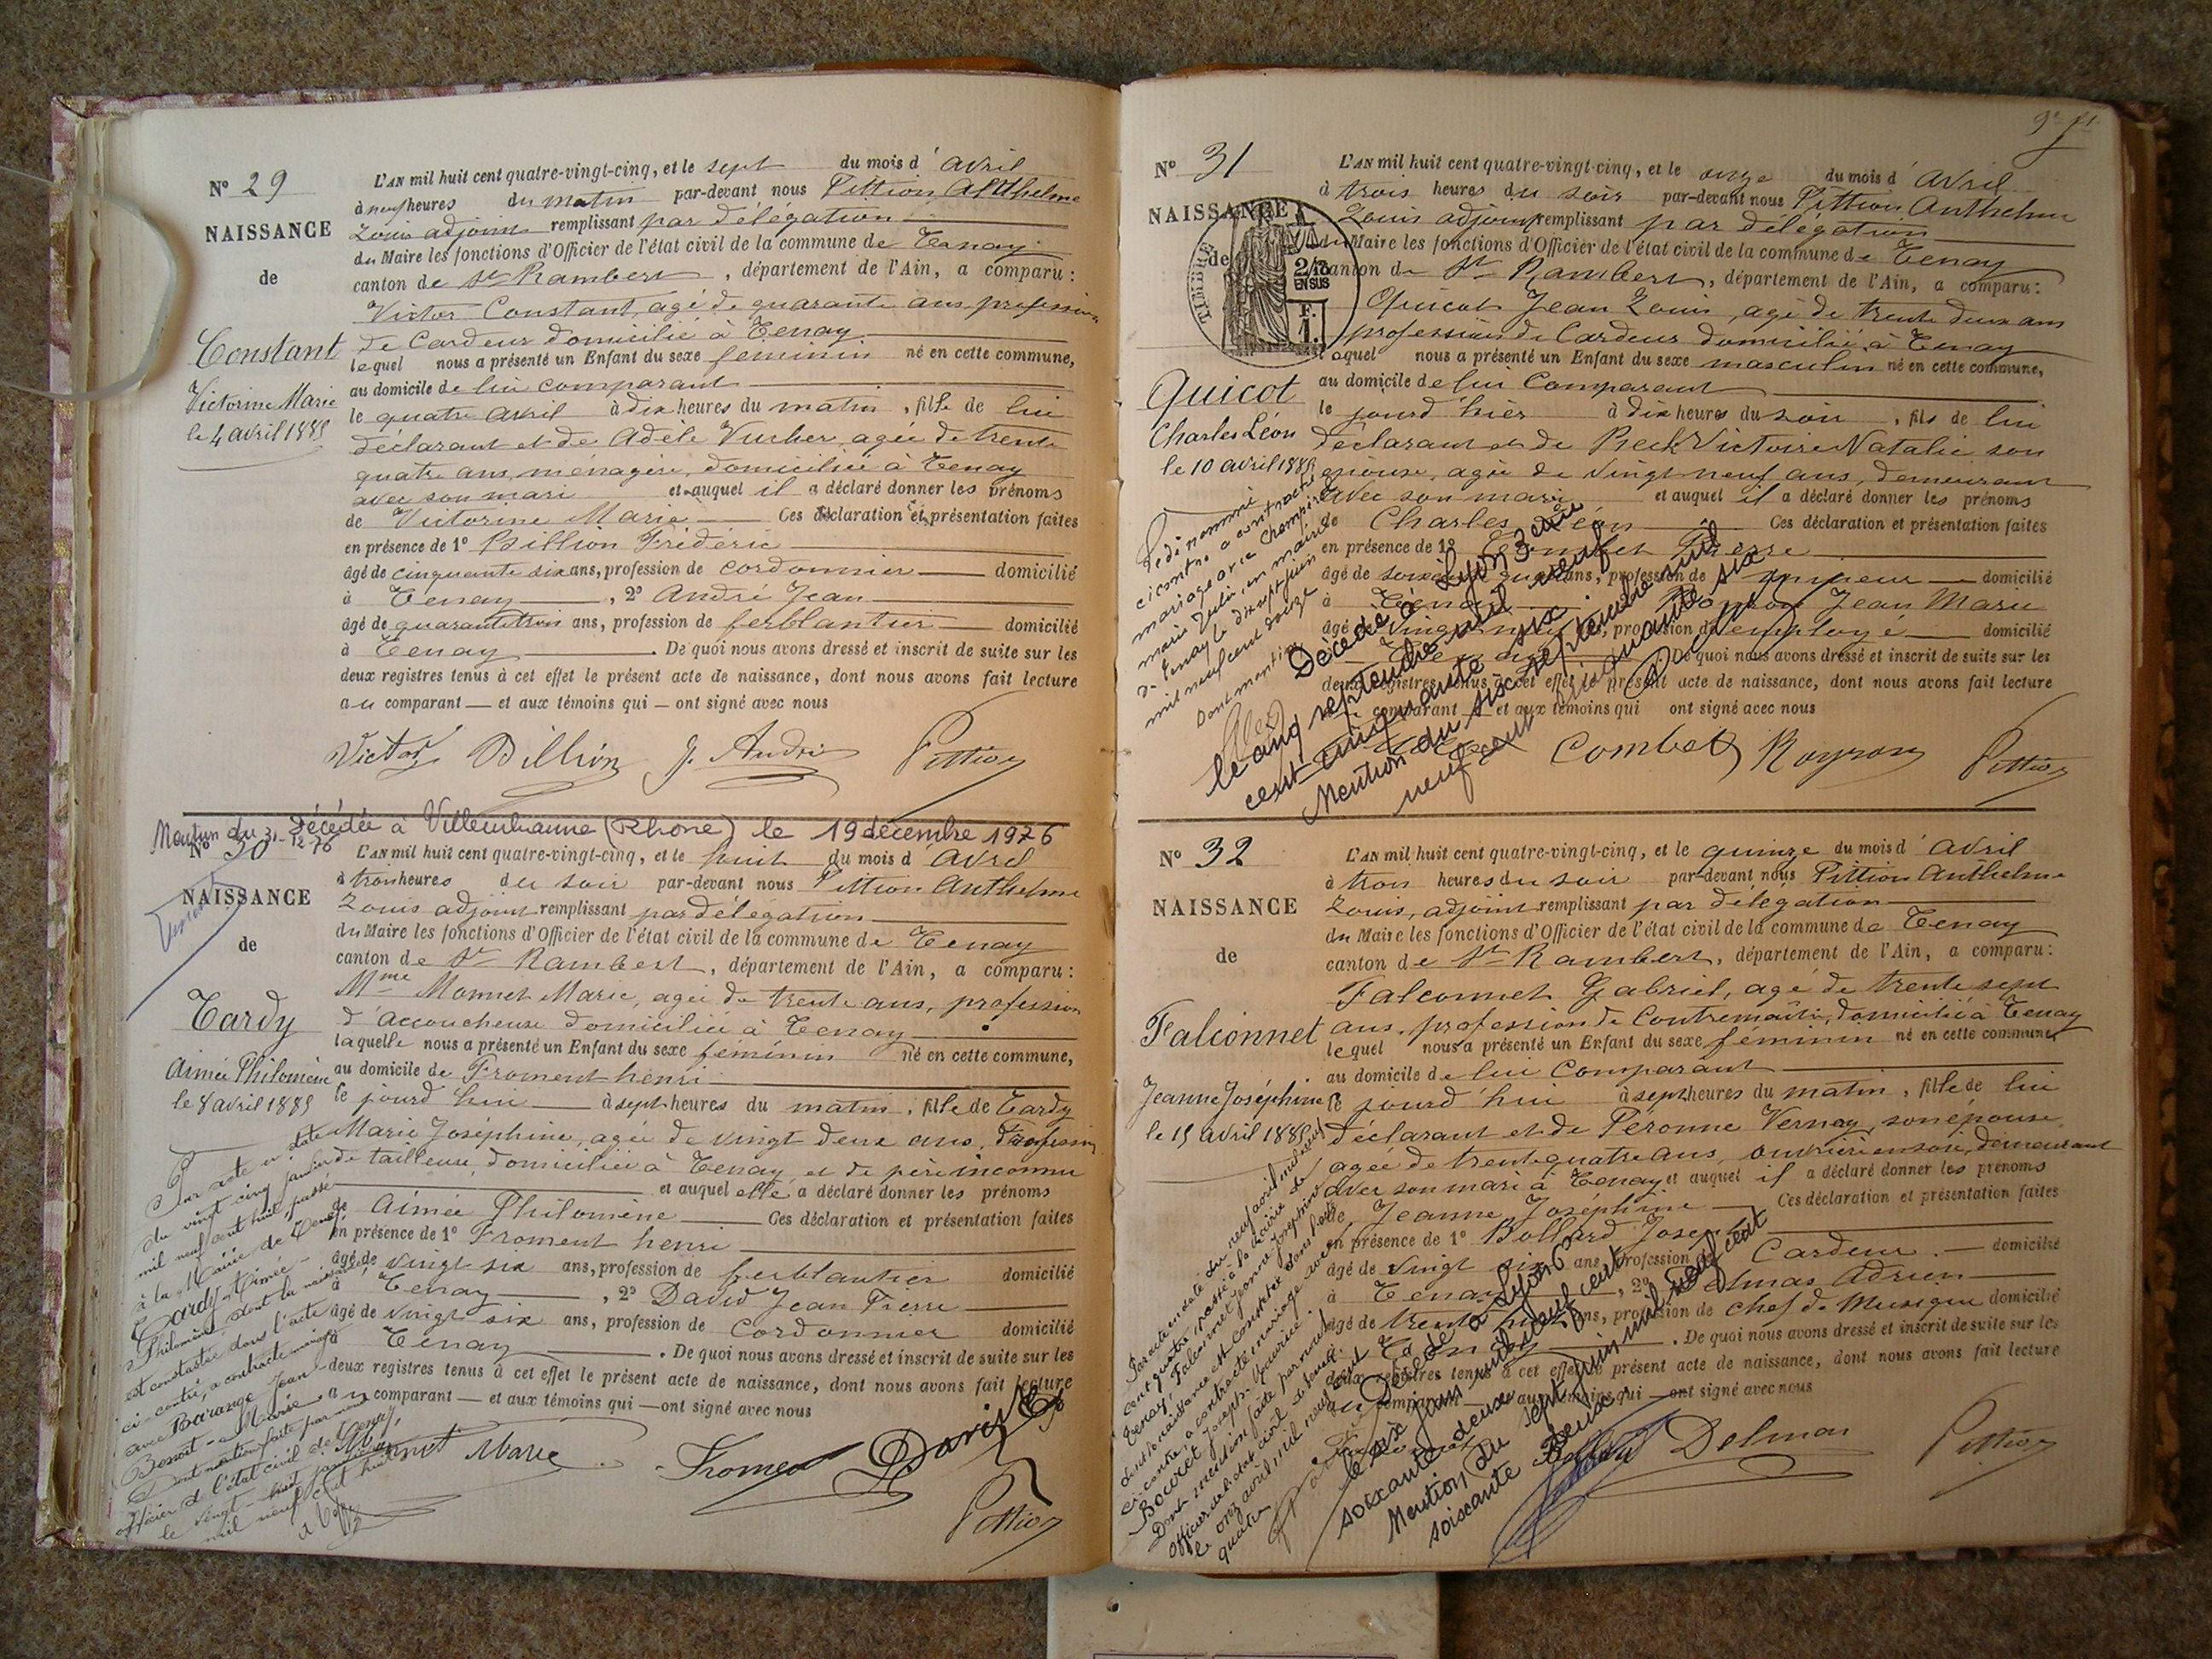 N° 29
NAISSANCE
de
Constant
Victorine Marie
le 4 avril 1885
L'AN mil huit cent quatre-vingt-cinq, et le sept du mois d'avril
à neuf heures du matin par-devant nous Pittion Anthelme
Louis adjoint remplissant par délégation
du Maire les fonctions d'Officier de l'état civil de la commune de Tenay
canton de St Rambert, département de l'Ain, a comparu :
Victor Constant, agé de quarante ans, profession
de Cardeur domicilié à Tenay
lequel nous a présenté un Enfant du sexe feminin né en cette commune,
au domicile de lui comparant
le quatre avril à dix heures du matin, fille de lui
déclarant et de Adèle Vucher, agée de trente
quatre ans, ménagère, domiciliée à Tenay
avec son mari et auquel il a déclaré donner les prénoms
de Victorine Marie Ces déclaration et présentation faites
en présence de 1° Billion Frédéric
âgé de cinquante six ans, profession de cordonnier domicilié
à Tenay, 2° André Jean
âgé de quarante trois ans, profession de ferblantier domicilié
à Tenay. De quoi nous avons dressé et inscrit de suite sur les
deux registres tenus à cet effet le présent acte de naissance, dont nous avons fait lecture
au comparant et aux témoins qui ont signé avec nous
Victor Billion J. André Pittion
Mention du 31-12-76 Décédée à Villeurbanne (Rhône) le 19 décembre 1976
N° 30
NAISSANCE
de
Tardy
Aimée Philomène
le 8 avril 1885
L'AN mil huit cent quatre-vingt-cinq, et le huit du mois d'avril
à trois heures du soir par-devant nous Pittion Anthelme
Louis adjoint remplissant par délégation
du Maire les fonctions d'Officier de l'état civil de la commune de Tenay
canton de St Rambert, département de l'Ain, a comparu :
Mme Monnet Marie, agée de trente ans, profession
d'accoucheuse domiciliée à Tenay
laquelle nous a présenté un Enfant du sexe féminin né en cette commune,
au domicile de Froment henri
le jourd'hui à sept heures du matin, fille de Tardy
Marie Joséphine, agée de vingt deux ans, profession
de tailleuse, domiciliée à Tenay et de père inconnu
et auquel elle a déclaré donner les prénoms
de Aimée Philomène Ces déclaration et présentation faites
en présence de 1° Froment henri
âgé de vingt six ans, profession de ferblantier domicilié
à Tenay, 2° David Jean Pierre
âgé de vingt six ans, profession de cordonnier domicilié
à Tenay. De quoi nous avons dressé et inscrit de suite sur les
deux registres tenus à cet effet le présent acte de naissance, dont nous avons fait lecture
au comparant et aux témoins qui ont signé avec nous
Monnet Marie Froment David
Pittion
Par acte en date
du vingt cinq janvier
mil neuf cent huit, passé
à la Mairie de Tenay
Tardy Aimée
Philomène, dont la naissance
est constatée dans l'acte
ci-contre, a contracté mariage
avec Barange Jean
Benoit Marie
Dont mention faite par nous
officier de l'état civil de Tenay,
le vingt-huit janvier
mil neuf cent huit
9e ft
N° 31
NAISSANCE
de
TIMBRE
2/10 EN SUS
F. 1.
Quicot
Charles Léon
le 10 avril 1885
L'AN mil huit cent quatre-vingt-cinq, et le onze du mois d'avril
à trois heures du soir par-devant nous Pittion Anthelme
Louis adjoint remplissant par délégation
du Maire les fonctions d'Officier de l'état civil de la commune de Tenay
canton de St Rambert, département de l'Ain, a comparu :
Quicot Jean Louis, agé de trente deux ans
profession de Cardeur domicilié à Tenay
lequel nous a présenté un Enfant du sexe masculin né en cette commune,
au domicile de lui Comparant
le jourd'hier à dix heures du soir, fils de lui
déclarant et de Victoire Natalie son
épouse, agée de vingt neuf ans, demeurant
avec son mari et auquel il a déclaré donner les prénoms
de Charles Léon Ces déclaration et présentation faites
en présence de 1° Combet Pierre
âgé de soixante quatre ans, profession de domicilié
à Tenay Jean Marie
âgé de vingt neuf ans, profession d'employé domicilié
à Tenay. De quoi nous avons dressé et inscrit de suite sur les
deux registres tenus à cet effet le présent acte de naissance, dont nous avons fait lecture
au comparant et aux témoins qui ont signé avec nous
Combet Royron Pittion
Le dénommé
ci contre a contracté
mariage avec
Marie Julie, en mairie
de Tenay le dix sept juin
mil neuf cent douze
Dont mention
Décédé à Lyon 3eme
le cinq septembre mil neuf
cent cinquante six.
Mention du six septembre mil
neuf cent cinquante six
N° 32
NAISSANCE
de
Falconnet
Jeanne Joséphine
le 15 avril 1885
L'AN mil huit cent quatre-vingt-cinq, et le quinze du mois d'avril
à trois heures du soir par-devant nous Pittion Anthelme
Louis, adjoint remplissant par délégation
du Maire les fonctions d'Officier de l'état civil de la commune de Tenay
canton de St Rambert, département de l'Ain, a comparu :
Falconnet Gabriel, agé de trente sept
ans, profession de Contremaître, domicilié à Tenay
lequel nous a présenté un Enfant du sexe féminin né en cette commune
au domicile de lui Comparant
le jourd'hui à sept heures du matin, fille de lui
déclarant et de Péronne Vernay, son épouse,
agée de trente quatre ans, ouvrière en soie, demeurant
avec son mari à Tenay et auquel il a déclaré donner les prénoms
de Jeanne Joséphine Ces déclaration et présentation faites
en présence de 1° Bollard Joseph
âgé de vingt six ans profession de Cardeur domicilié
à Tenay, 2° Delmas Adrien
âgé de trente ans, profession de chef de Musique domicilié
à Tenay. De quoi nous avons dressé et inscrit de suite sur les
deux registres tenus à cet effet le présent acte de naissance, dont nous avons fait lecture
au comparant et aux témoins qui ont signé avec nous
Delmas Pittion
Par acte en date du neuf avril mil neuf
cent quatre, passé à la mairie de
Tenay, Falconnet Jeanne Joséphine
dont la naissance est constatée dans l'acte
ci-contre, a contracté mariage avec
Joseph Maurice
Dont mention faite par nous
officier de l'état civil
le onze avril mil neuf cent
quatre
Décédée à Lyon 6e
le six juin mil neuf cent
soixante deux
Mention du sept juin mil neuf cent
soixante deux